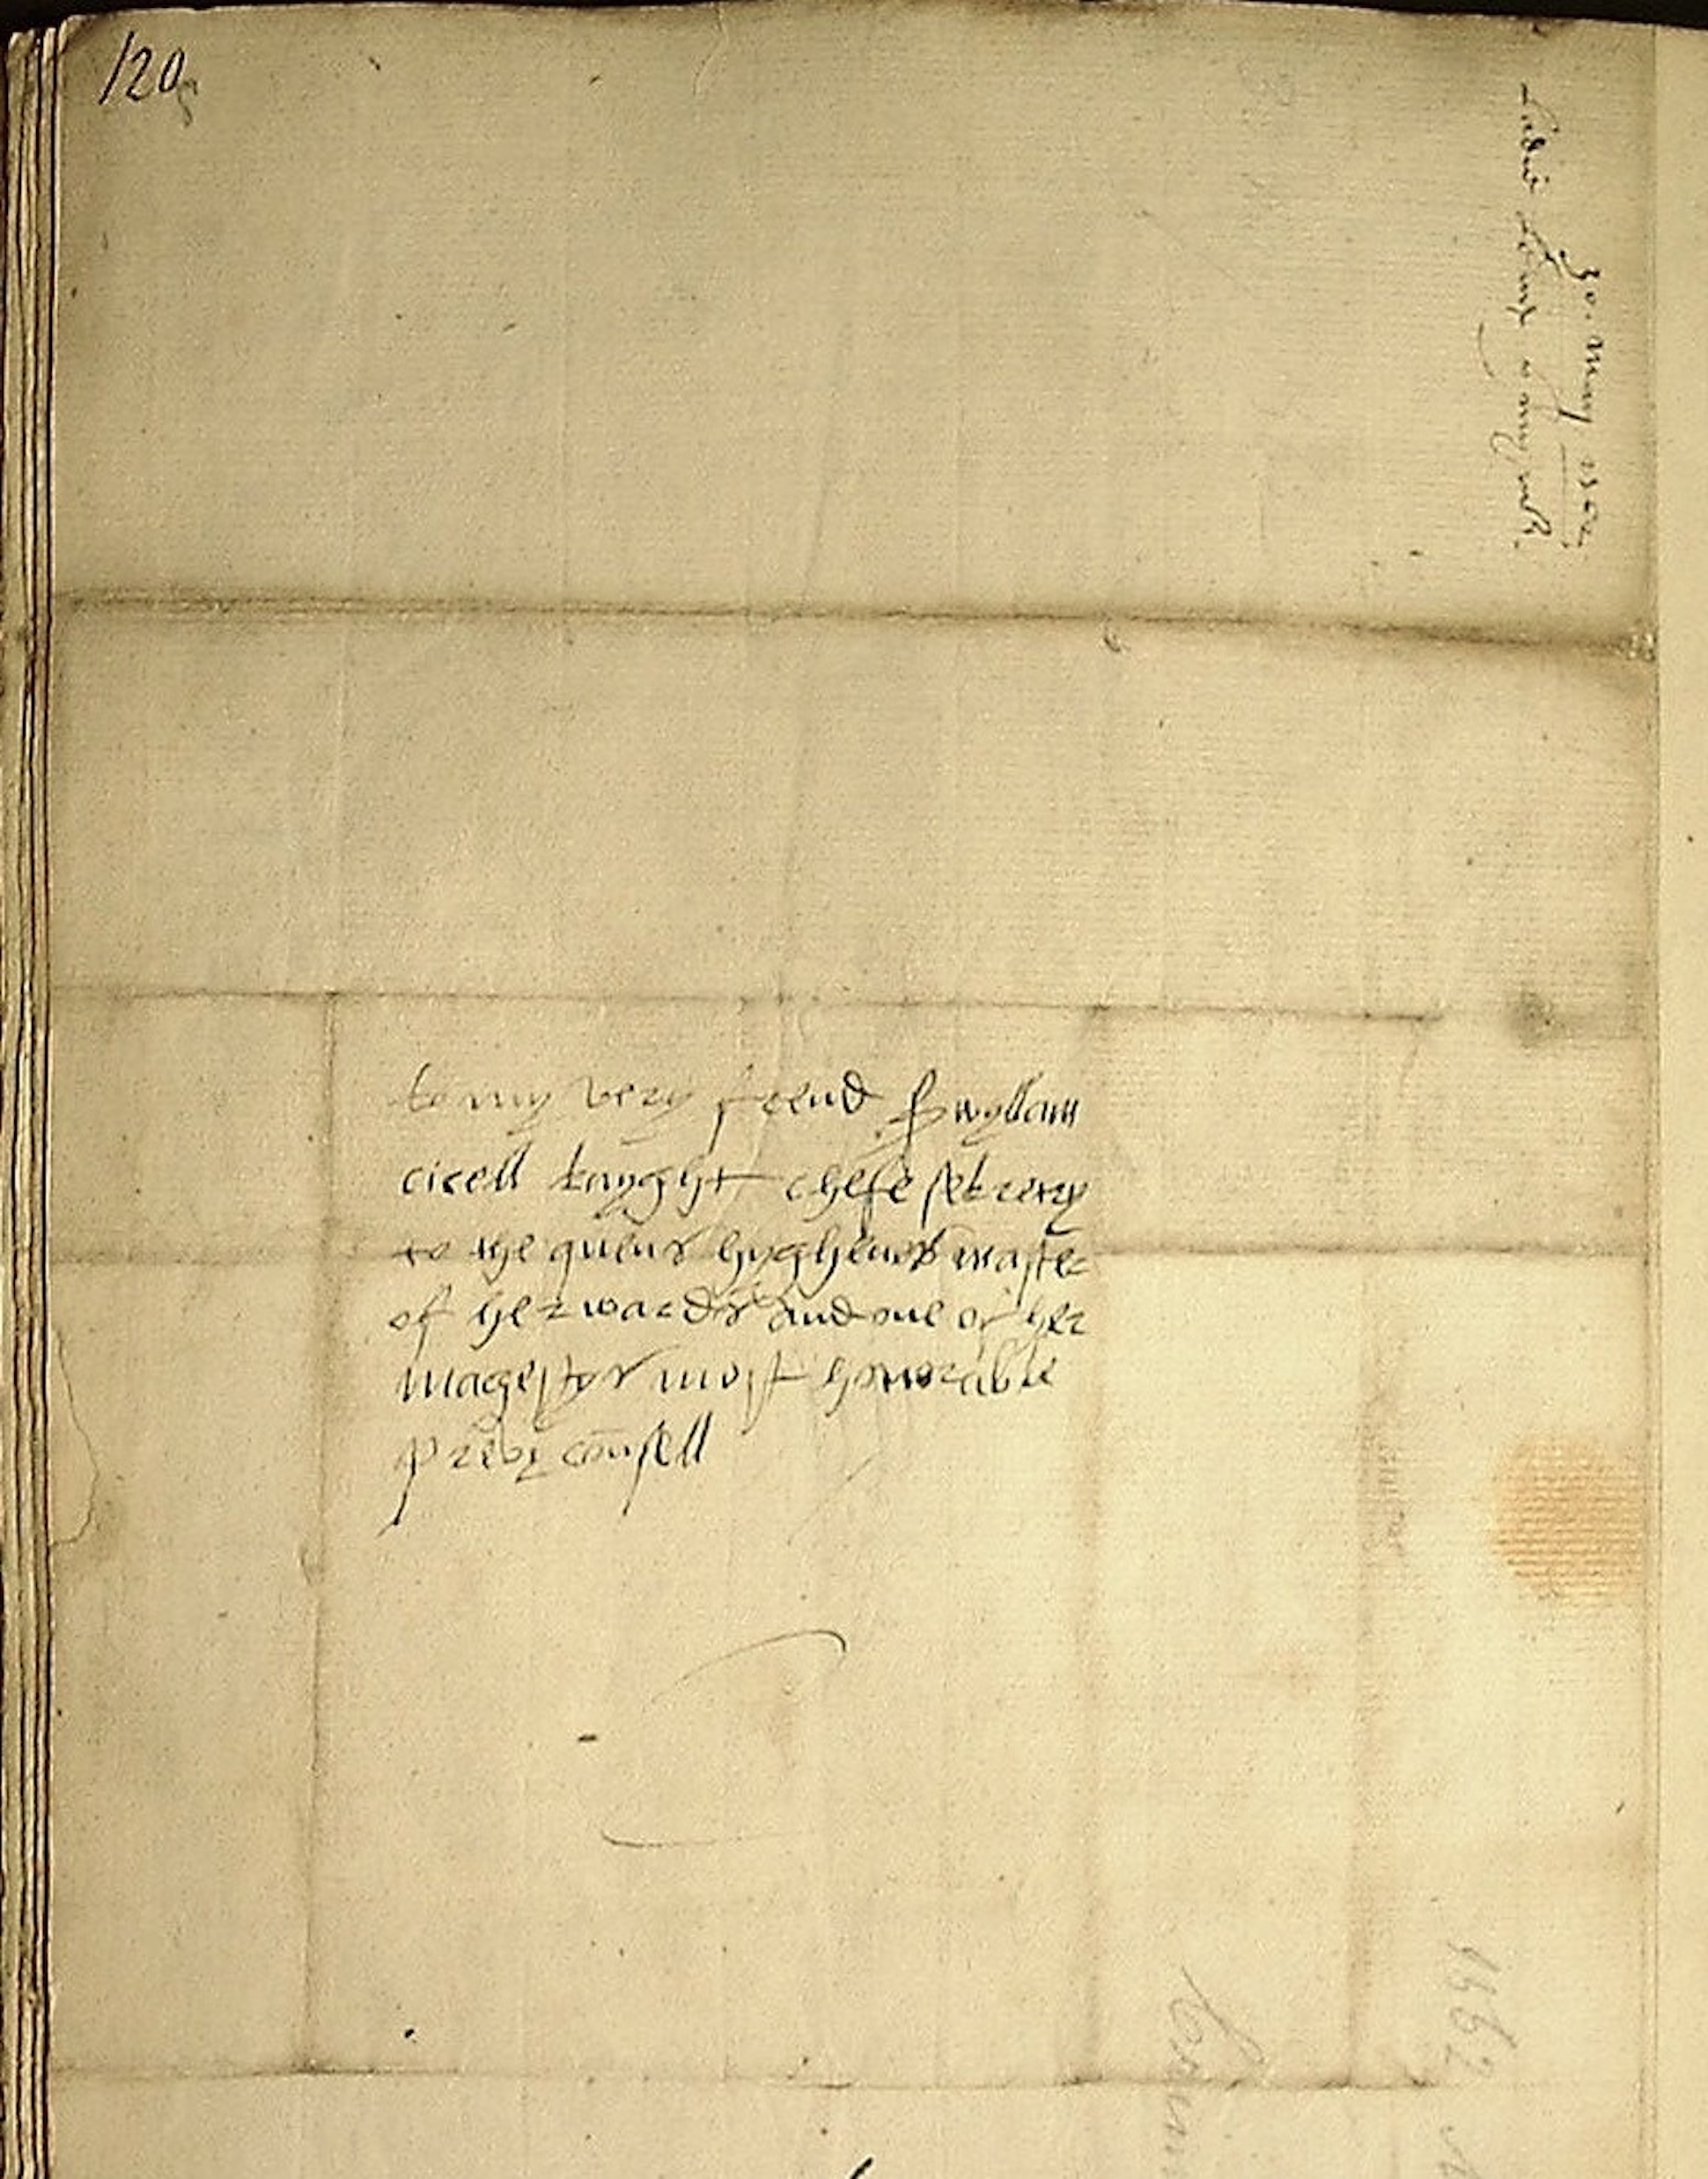 120
to my very frend Sr wyllam
cicell knyght chefe sekretry
to the quens hyghenes master
of her wardes and one of her
magestys most honorable
prevy consell
1562